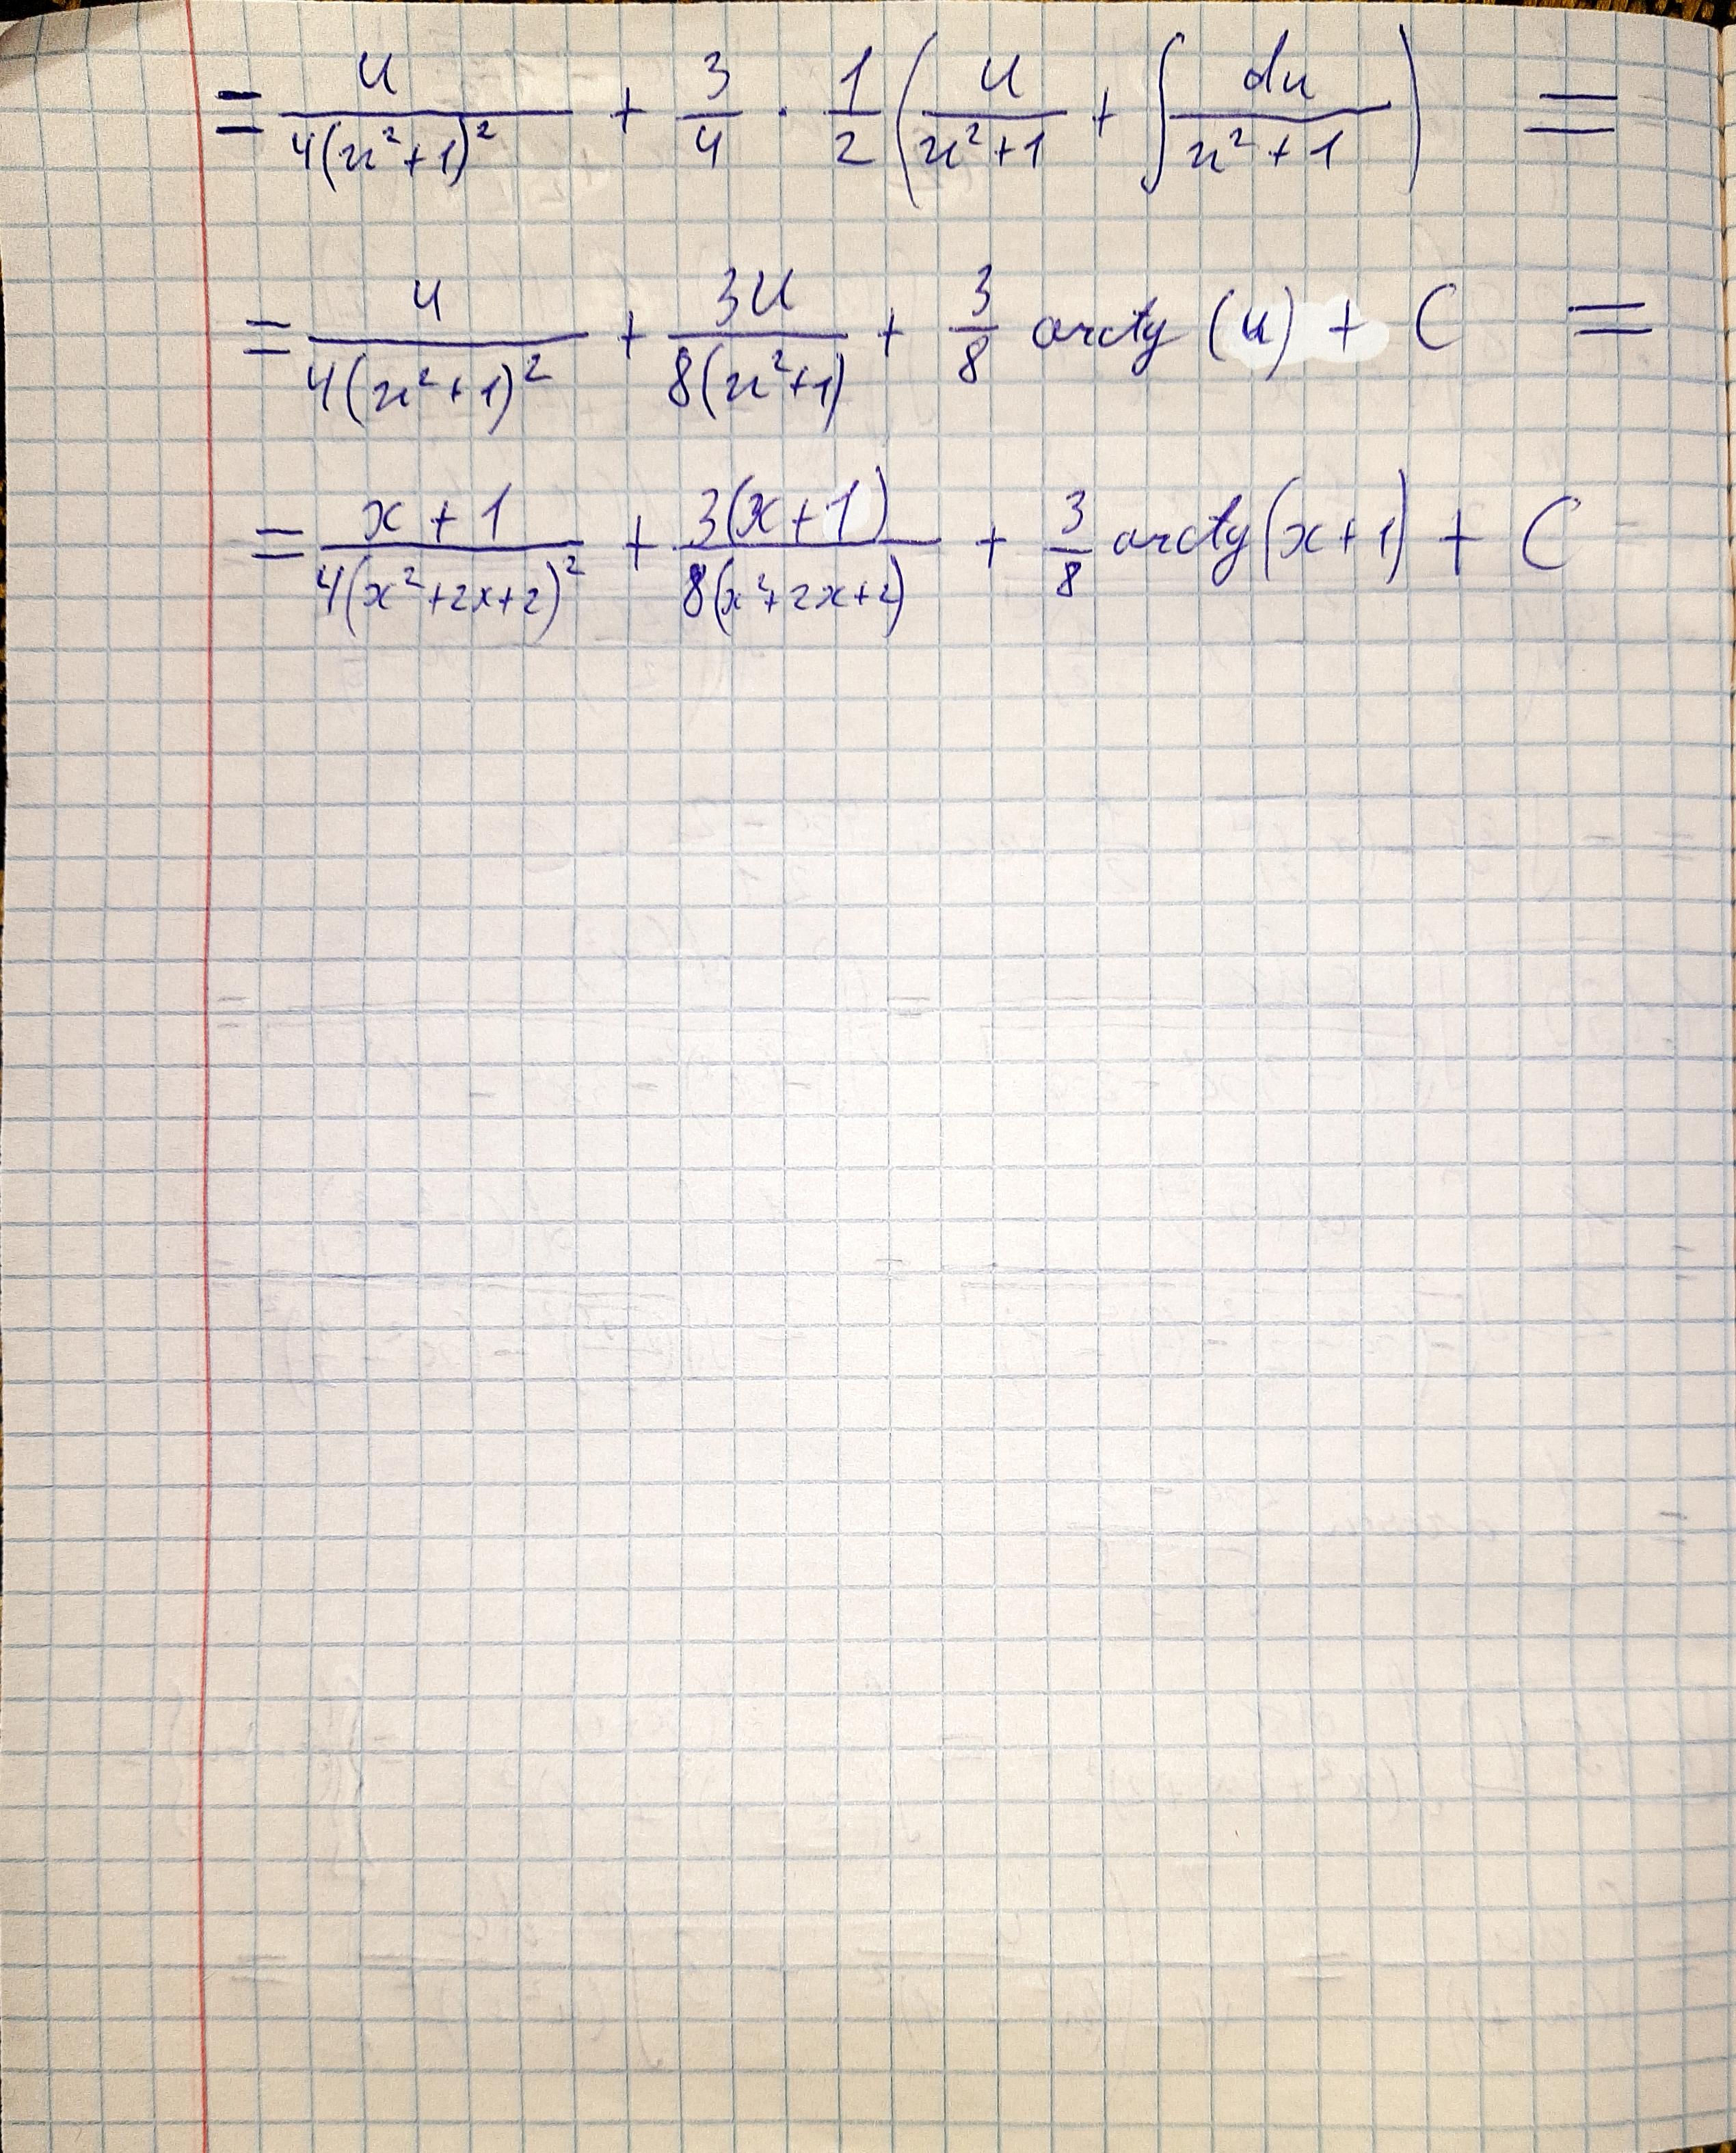 = u/(4(u²+1)²) + 3/4 · 1/2 (u/(u²+1) + ∫ du/(u²+1)) =
= u/(4(u²+1)²) + 3u/(8(u²+1)) + 3/8 arctg (u) + C =
= (x+1)/(4(x²+2x+2)²) + 3(x+1)/(8(x²+2x+2)) + 3/8 arctg(x+1) + C